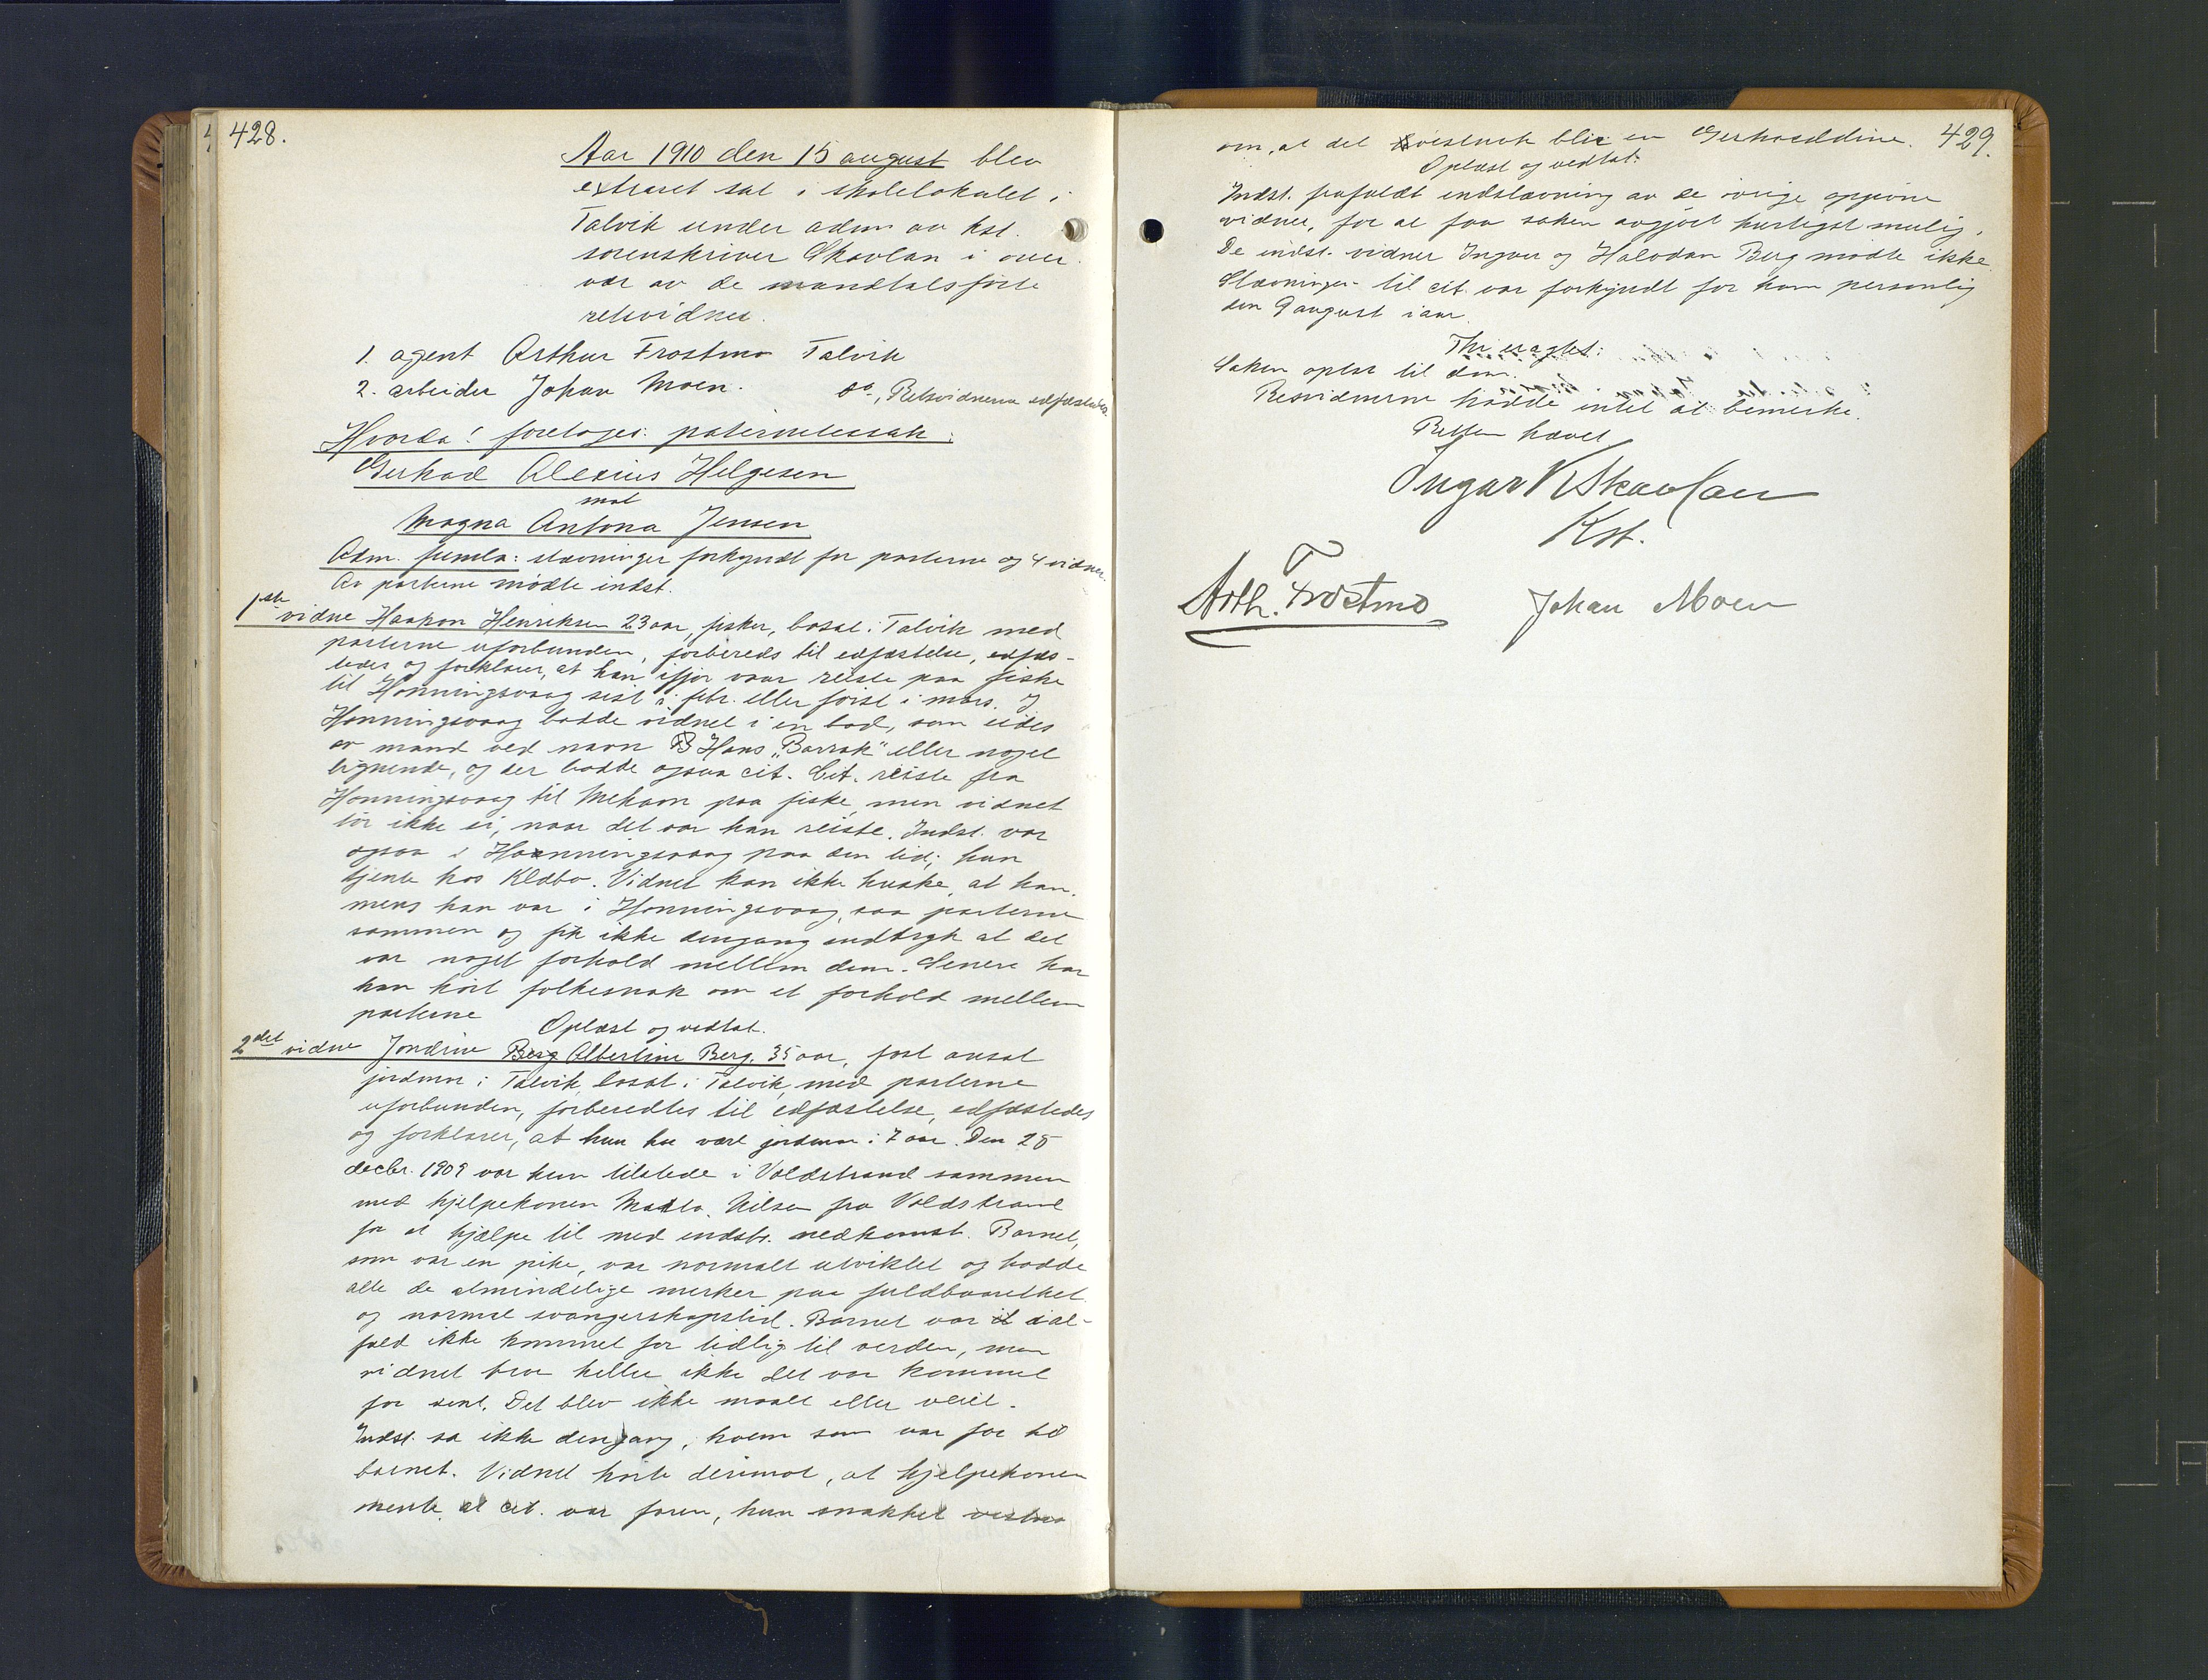 428.
Aar 1910 den 15 august blev
extraret sat i skolelokalet i
Talvik under adm av kst.
sorenskriver Skavlan i over
vær av de mandtalsførte
retsvidner.
1. agent Arthur Frostmo Talvik
2. arbeider Johan Moen. do, Retsvidnerne edfæstedes
Hvorda! foretoges: paternitetssak:
Gerhard Alexius Helgesen
mot
Magna Antona Jensen
Adm. fremla: stævninger forkyndt for parterne og 4 vidner.
Av parterne mødte indst.
1ste vidne Haakon Henriksen 23 aar, fisker, bosat i Talvik med
parterne uforbunden, forbereds til edfæstelse, edfæs-
tedes og forklarer, at han ifjor vaar reiste paa fiske
til Honningsvaag sist i febr. eller først i mars. I
Honningsvaag bodde vidnet i en bod, som eides
av mand ved navn B Hans "Barrak" eller noget
lignende, og der bodde ogsaa cit. Cit. reiste fra
Honningsvaag til Mehavn paa fiske, men vidnet
tør ikke si, naar det var han reiste. Indst. var
ogsaa i Honningsvaag paa den tid; hun
tjente hos Kldbo. Vidnet kan ikke huske, at han,
mens han var i Honningsvaag, saa parterne
sammen og fik ikke dengang indtryk at det
var noget forhold mellem dem. Senere har
han hørt folkesnak om et forhold mellem
parterne
Oplæst og vedtat.
2det vidne Jondine Berg Albertine Berg, 35 aar, fast ansat
jordmor i Talvik, bosat i Talvik, med parterne
uforbunden, forberedtes til edfæstelse, edfæstedes
og forklarer, at hun har vært jordmor i 7 aar. Den 25
decbr. 1909 var hun tilstede i Voldstrand sammen
med hjelpekonen Nilsen fra Voldstrand
for at hjælpe til med indst. nedkomst. Barnet,
som var en pike, var normalt utviklet og hadde
alle de almindelige merker paa fuldbaarethet
og normal svangerskapstid. Barnet var it ial-
fald ikke kommet for tidlig til verden, men
vidnet tror heller ikke det var kommet
for sent. Det blev ikke maalt eller veiet.
Indst. sa ikke dengang, hvem som var far til
barnet. Vidnet hørte derimot, at hjelpekonen
mente, at cit. var faren, hun snakket vistno
429.
om, at det vistnok blir en Gerharddine.
Oplæst og vedtat.
Indst. frafaldt indstævning av de øvrige opgivne
vidner, for at faa saken avgjort hurtigst mulig.
De indst. vidner Ingvar og Halvdan Berg mødte ikke.
Stævninger til cit. var forkyndt for ham personlig
den 9 august iaar.
Thi eragtet:
Saken optas til dom.
Retsvidnerne hadde intet at bemerke.
Retten hævet
Ingar K Skavlan
Kst.
Arth. Frostmo Johan Moen